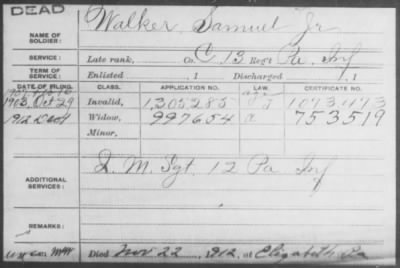 DEAD
NAME OF SOLDIER: Walker, Samuel Jr
SERVICE: Late rank, Co. C, 13 Reg't Pa. Inf
TERM OF SERVICE: Enlisted , 1 Discharged , 1
DATE OF FILING. CLASS. APPLICATION NO. LAW. CERTIFICATE NO.
1903, Oct 29 Invalid, 1305285 1073473
1912 Dec 4 Widow, 997654 a 753519
Minor,
ADDITIONAL SERVICES: Q. M. Sgt. 12 Pa Inf
REMARKS:
Died Nov 22, 1912, at Elizabeth Pa